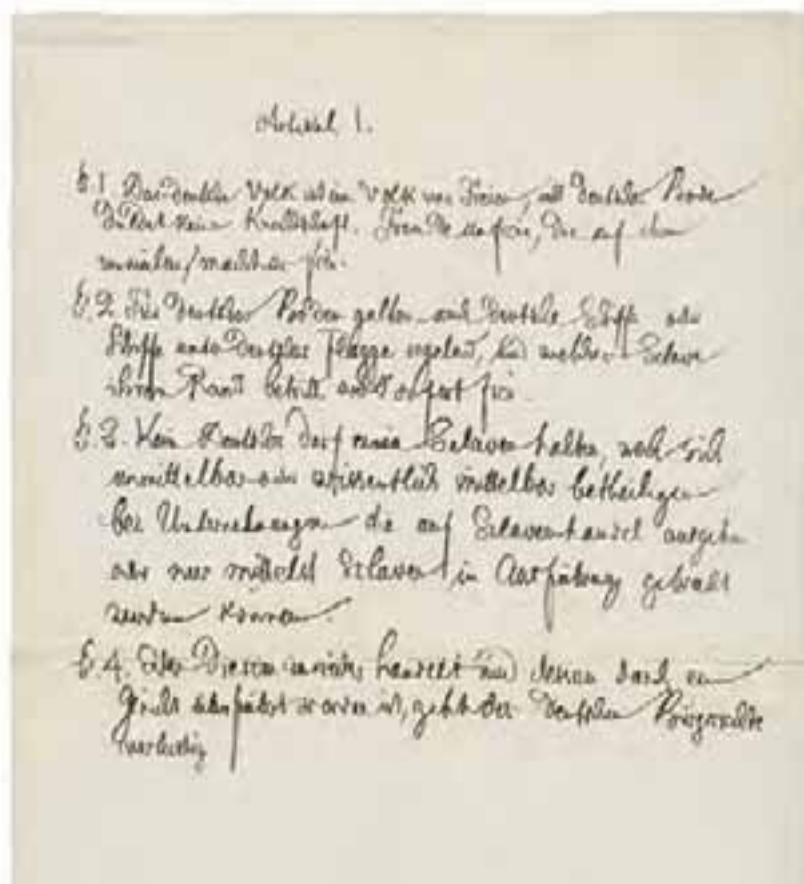 Artikel 1.
§.1 Das deutsche Volk ist ein Volk von Freien, und deutscher Boden
duldet keine Knechtschaft. Fremde unfreie, die auf ihm
verweilen, macht er frei.
§.2 Für deutschen Boden gelten auch deutsche Schiffe oder
Schiffe unter deutscher Flagge segelnd, und welcher Sclave
ihren Rand betritt wird sofort frei.
§.3. Kein Deutscher darf einen Sclaven halten, noch sich
unmittelbar oder wissentlich mittelbar betheiligen
bei Unternehmungen die auf Sclavenhandel ausgehn
oder nur mittelst Sclaven in Ausführung gebracht
werden können.
§.4. Wer diesem zuwider handelt und dessen durch ein
Gericht überführt worden ist, geht des deutschen Bürgerrechts
verlustig